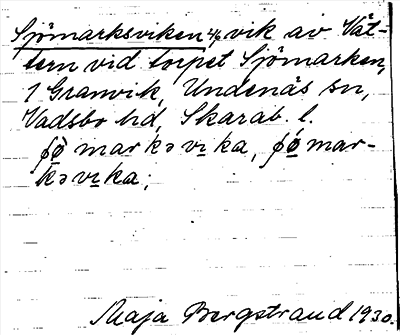 Sjömarksviken 4/6 vik av Vät-
tern vid torpet Sjömarken,
1 Granvik, Undenäs sn,
Vadsbo hd, Skarab. l.
ʃö̀markəvɪka, ʃö́mar-
kəvɪka;
Maja Bergstrand 1930.